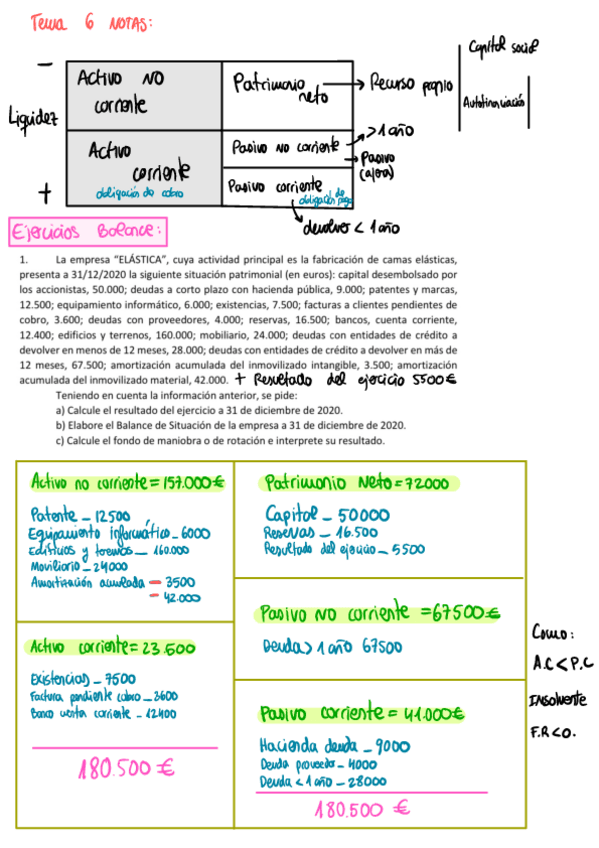 Tema 6 NOTAS:
-
Liquidez
+
Activo NO
corriente
Patrimonio
neto
Recurso propio
Capital social
Autofinanciación
Activo
corriente
obligación de cobro
Pasivo no corriente
>1 año
Pasivo
(ajena)
Pasivo corriente
obligación de
pago
devolver < 1 año
Ejercicios Balance:
1. La empresa “ELÁSTICA”, cuya actividad principal es la fabricación de camas elásticas,
presenta a 31/12/2020 la siguiente situación patrimonial (en euros): capital desembolsado por
los accionistas, 50.000; deudas a corto plazo con hacienda pública, 9.000; patentes y marcas,
12.500; equipamiento informático, 6.000; existencias, 7.500; facturas a clientes pendientes de
cobro, 3.600; deudas con proveedores, 4.000; reservas, 16.500; bancos, cuenta corriente,
12.400; edificios y terrenos, 160.000; mobiliario, 24.000; deudas con entidades de crédito a
devolver en menos de 12 meses, 28.000; deudas con entidades de crédito a devolver en más de
12 meses, 67.500; amortización acumulada del inmovilizado intangible, 3.500; amortización
acumulada del inmovilizado material, 42.000. + Resultado del ejercicio 5500€
Teniendo en cuenta la información anterior, se pide:
a) Calcule el resultado del ejercicio a 31 de diciembre de 2020.
b) Elabore el Balance de Situación de la empresa a 31 de diciembre de 2020.
c) Calcule el fondo de maniobra o de rotación e interprete su resultado.
Activo no corriente = 157.000€
Patente _ 12500
Equipamiento informático _ 6000
Edificios y terrenos _ 160.000
Moviliario _ 24000
Amortización acumulada - 3500
- 42.000
Activo corriente = 23.500
Existencias _ 7500
Factura pendiente cobro _ 3600
Banco cuenta corriente _ 12400
180.500 €
Patrimonio Neto = 72000
Capital _ 50000
Reservas _ 16.500
Resultado del ejercicio _ 5500
Pasivo no corriente = 67500€
Deuda > 1 año 67500
Pasivo corriente = 41.000€
Hacienda deuda _ 9000
Deuda proveedor _ 4000
Deuda < 1 año _ 28000
180.500 €
Como:
A.C < P.C
INSOLVENTE
F.R < 0.